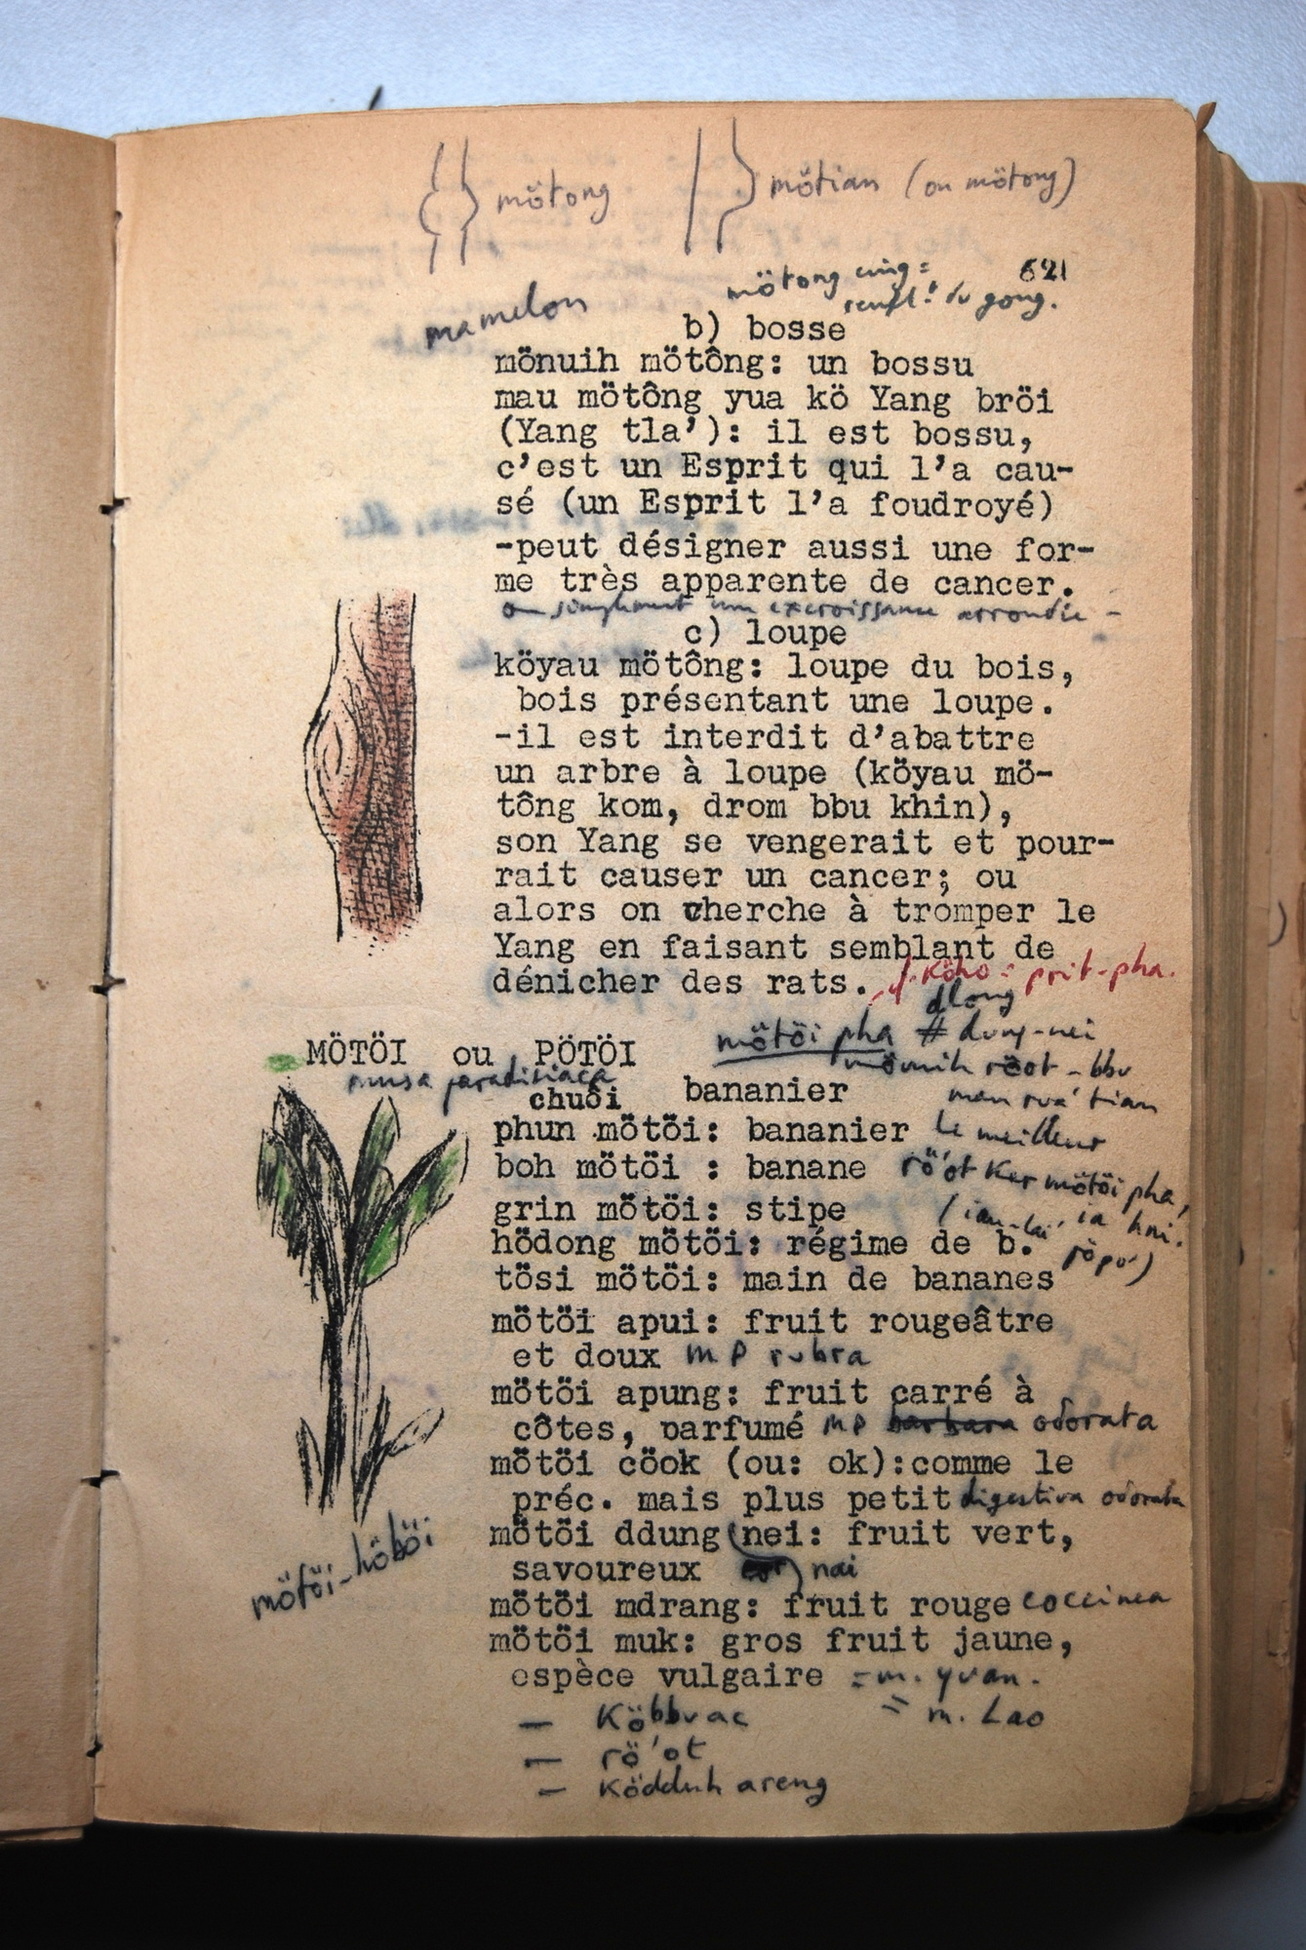 mötong
mötian (ou mötong)
621
mötong cing =
renfl.t du gong.
mamelon
b) bosse
mönuih mötông: un bossu
mau mötông yua kö Yang bröi
(Yang tla'): il est bossu,
c'est un Esprit qui l'a cau-
sé (un Esprit l'a foudroyé)
-peut désigner aussi une for-
me très apparente de cancer.
ou simplement une excroissance arrondie -
c) loupe
köyau mötông: loupe du bois,
bois présentant une loupe.
-il est interdit d'abattre
un arbre à loupe (köyau mö-
tông kom, drom bbu khin),
son Yang se vengerait et pour-
rait causer un cancer; ou
alors on cherche à tromper le
Yang en faisant semblant de
dénicher des rats.
Köho = prit-pha.
dlong
mötöi pha # dung-nei
MÖTÖI ou PÖTÖI
mönuih röot - bbu
musa paradisiaca
chuối bananier
man rua' tian
phun mötöi: bananier
le meilleur
boh mötöi : banane
rö'ot Ker mötöi pha,
grin mötöi: stipe
hödong mötöi: régime de b.
röpo')
tösi mötöi: main de bananes
mötöi apui: fruit rougeâtre
et doux M P rubra
mötöi apung: fruit carré à
côtes, parfumé MP barbara odorata
mötöi cöok (ou: ok):comme le
préc. mais plus petit digestiva odorata
mötöi ddung(nei: fruit vert,
savoureux ) nai
mötöi mdrang: fruit rouge coccinea
mötöi-höböi
mötöi muk: gros fruit jaune,
espèce vulgaire = m. yuan.
= m. Lao
— Köbbuac
— rö'ot
— Ködduh areng